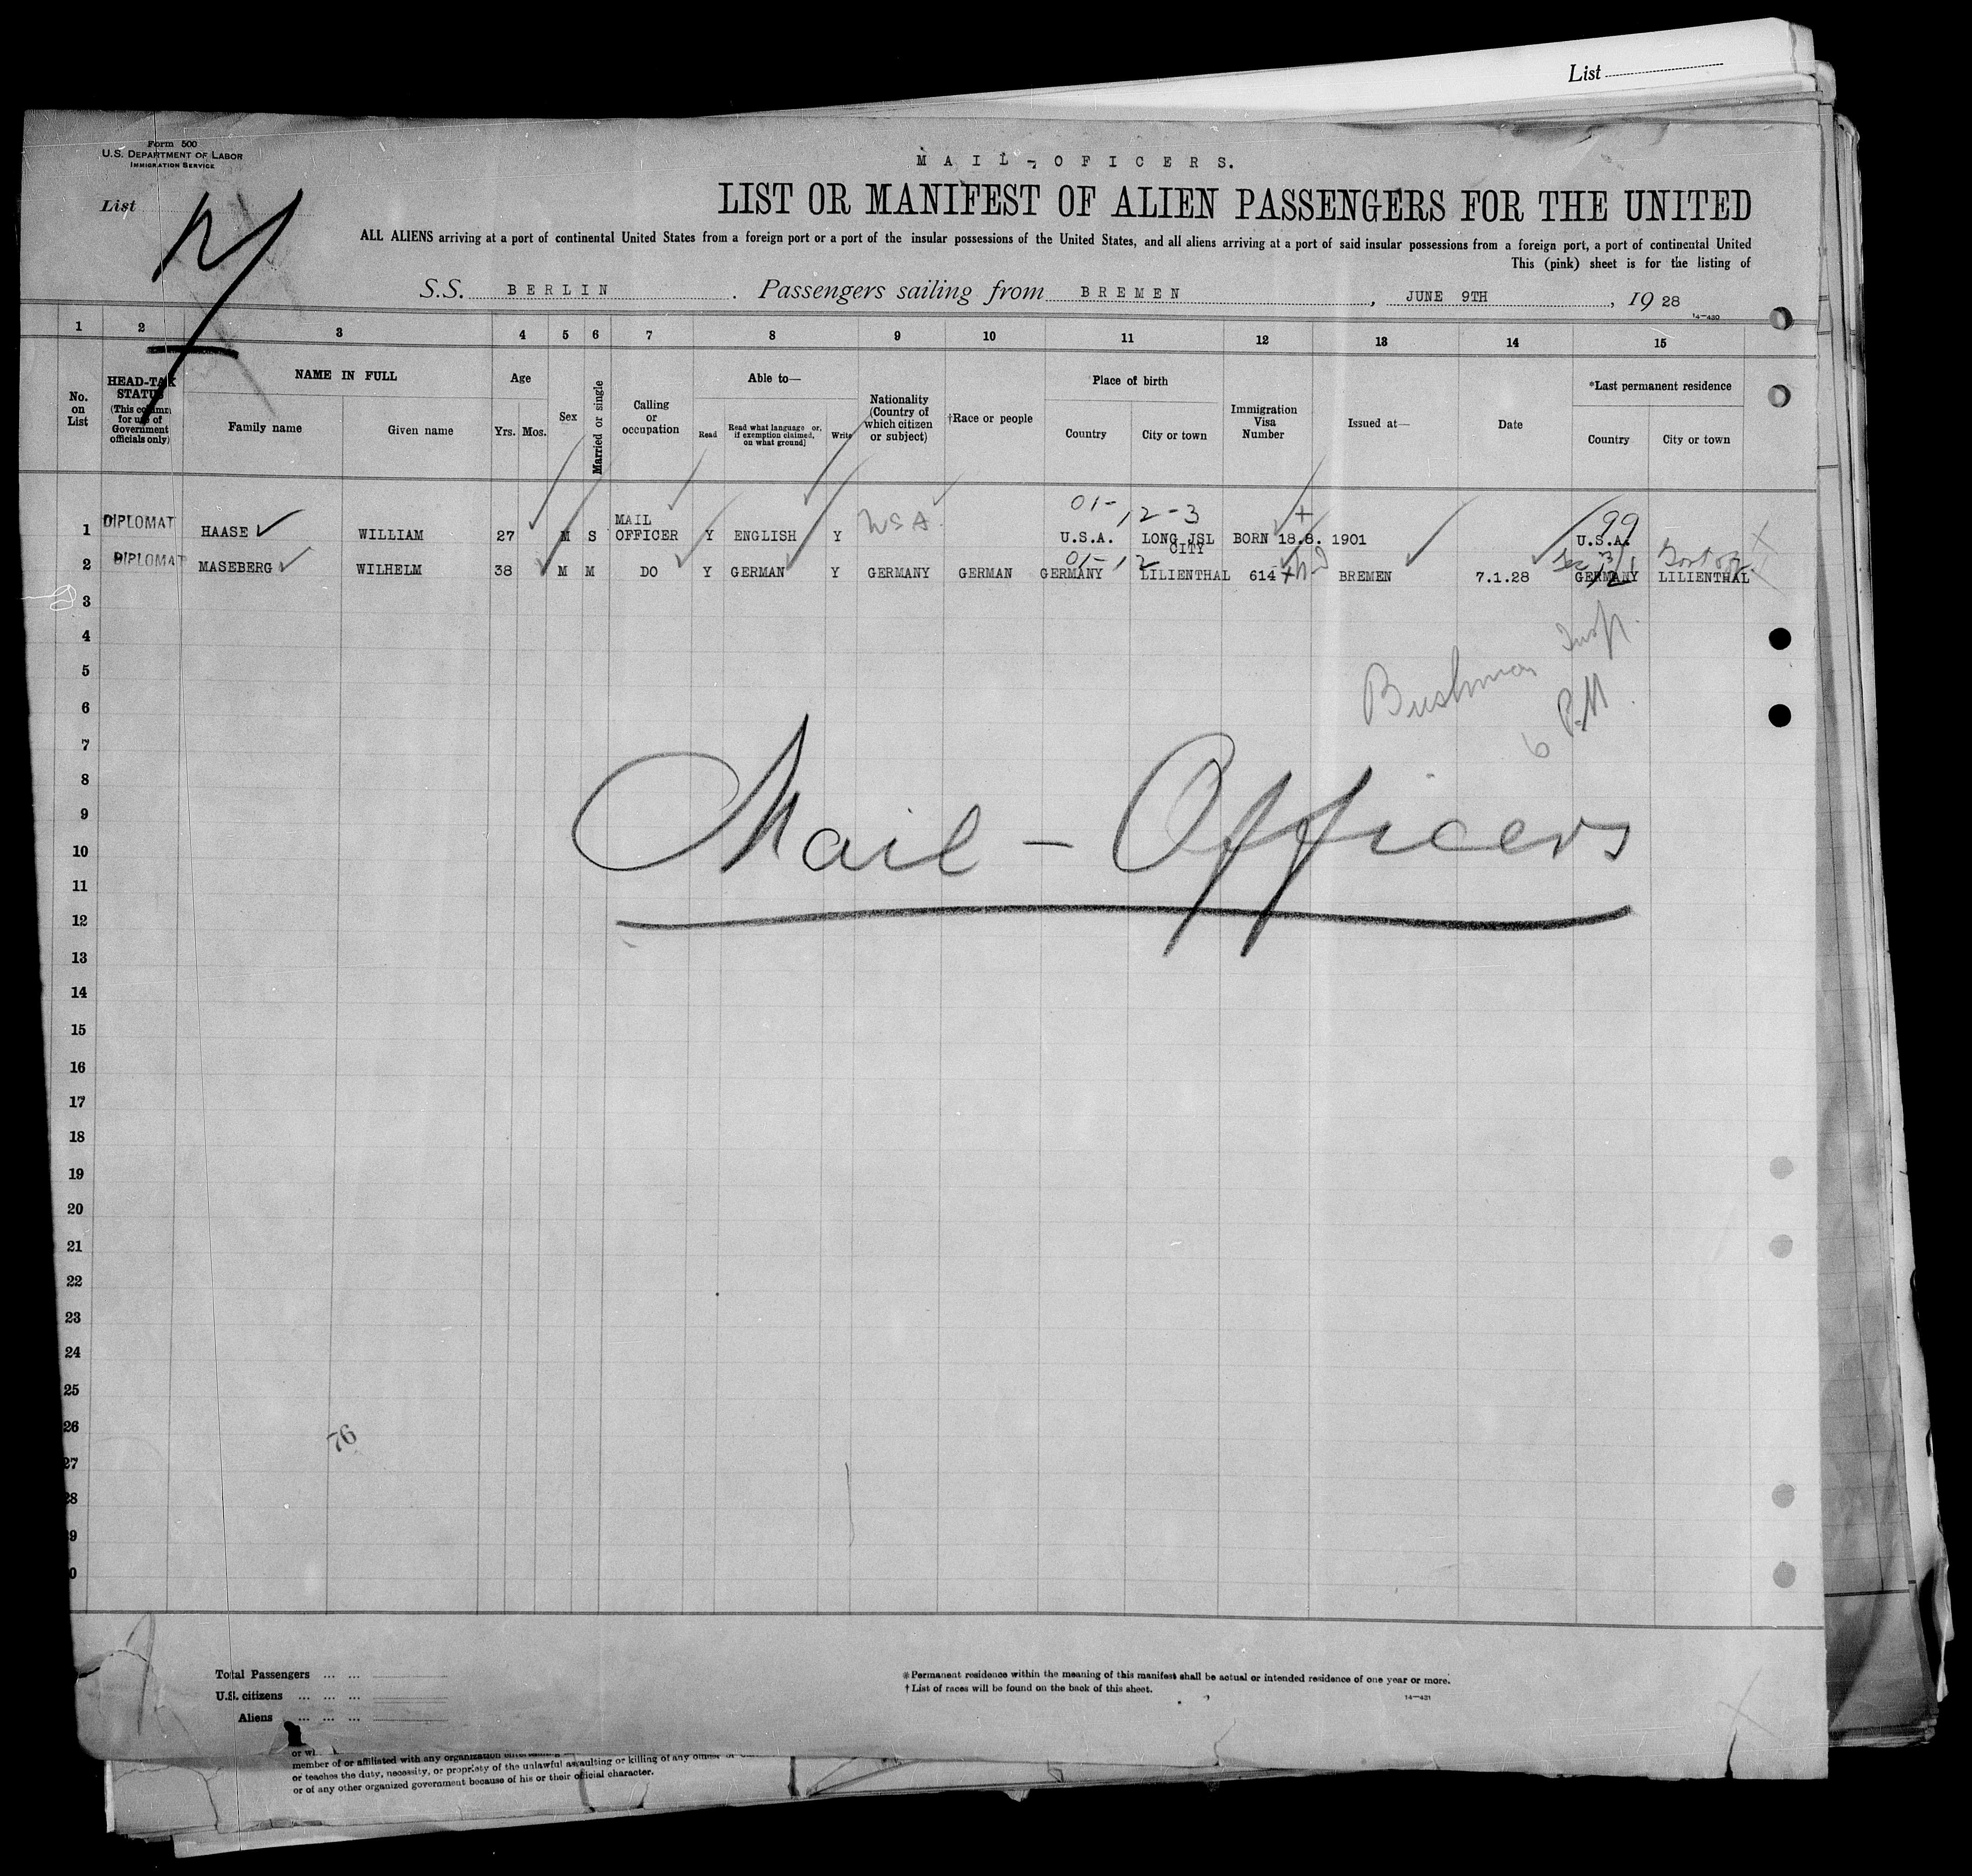 List
Form 500
U.S. DEPARTMENT OF LABOR
IMMIGRATION SERVICE
List
MAIL-OFFICERS.
LIST OR MANIFEST OF ALIEN PASSENGERS FOR THE UNITED
ALL ALIENS arriving at a port of continental United States from a foreign port or a port of the insular possessions of the United States, and all aliens arriving at a port of said insular possessions from a foreign port, a port of continental United
This (pink) sheet is for the listing of
S.S. BERLIN. Passengers sailing from BREMEN, JUNE 9TH, 19 28
14-430
1 2 3 4 5 6 7 8 9 10 11 12 13 14 15
No. on List
HEAD-TAX STATUS (This column for use of Government officials only)
NAME IN FULL
Family name
Given name
Age
Yrs. Mos.
Sex
Married or single
Calling or occupation
Able to—
Read
Read what language or, if exemption claimed, on what ground]
Write
Nationality (Country of which citizen or subject)
†Race or people
Place of birth
Country
City or town
Immigration Visa Number
Issued at—
Date
*Last permanent residence
Country
City or town
01- 12-3
1 DIPLOMAT HAASE WILLIAM 27 M S MAIL OFFICER Y ENGLISH Y USA. U.S.A. LONG JSL CITY BORN 18.8. 1901 99 U.S.A.
01-12
2 DIPLOMAT MASEBERG WILHELM 38 M M DO Y GERMAN Y GERMANY GERMAN GERMANY LILIENTHAL 614 BREMEN 7.1.28 GERMANY LILIENTHAL
3
4
5
6
7
8
9
10
11
12
13
14
15
16
17
18
19
20
21
22
23
24
25
26
27
28
9
0
Bushman Insp.
6 P.M.
Mail-Officers
76
Total Passengers ... ...
U.S. citizens ... ... ...
Aliens ... ... ...
*Permanent residence within the meaning of this manifest shall be actual or intended residence of one year or more.
†List of races will be found on the back of this sheet.
14-431
member of or affiliated with any organization
or teaches the duty, necessity, or propriety of the unlawful assaulting or killing of any
or of any other organized government because of his or their official character.